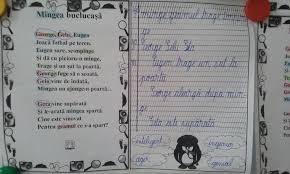 Mingea buclucașă
George, Gelu, Eugen
Joacă fotbal pe teren.
Eugen sare, se-mpinge
Și dă cu piciorul-n minge,
Trage și un șut la poartă.
George fuge să o scoată.
Gelu vine de îndată,
Mingea un ajunge-n poartă...
Gelu vine supărată
Și le-arată mingea spartă
Cine este vinovat
Pentru geamul ce s-a spart?
mingea, geamul trage
George Gelu
Eugen trage un șut la
poartă
George aleargă după min
ge
Gelu este supărată
inteligent
ager
ingenios
genial